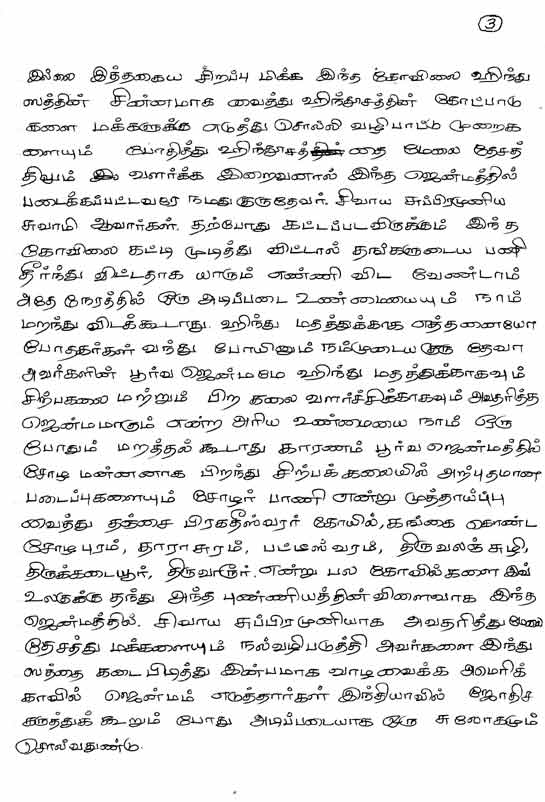 3
இல்லை இத்தகைய சிறப்பு மிக்க இந்த கோவிலை ஹிந்து
ஸத்தின் சின்னமாக வைத்து ஹிந்தூசத்தின் கோட்பாடு
களை மக்களுக்கு எடுத்து சொல்லி வழிபாட்டு முறைக
ளையும் போதித்து ஹிந்தூசத்தை மேலை தேசத்
திலும் வளர்க்க இறைவனால் இந்த ஜென்மத்தில்
படைக்கப்பட்டவரே நமது குருதேவர். சிவாய சுப்பிரமுனிய
சுவாமி ஆவார்கள். தற்போது கட்டப்படவிருக்கும் இந்த
கோவிலை கட்டி முடித்து விட்டால் தங்களுடைய பணி
தீர்ந்து விட்டதாக யாரும் எண்ணி விட வேண்டாம்
அதே நேரத்தில் ஒரு அடிப்படை உண்மையையும் நாம்
மறந்து விடக்கூடாது. ஹிந்து மதத்துக்காக எத்தனையோ
போதகர்கள் வந்து போயினும் நம்முடைய குரு தேவா
அவர்களின் பூர்வ ஜென்மமே ஹிந்து மதத்துக்காகவும்
சிற்பகலை மற்றும் பிற கலை வளர்ச்சிக்காகவும் அவதரித்த
ஜென்மமாகும் என்ற அரிய உண்மையை நாம் ஒரு
போதும் மறத்தல் கூடாது காரணம் பூர்வ ஜென்மத்தில்
சோழ மன்னனாக பிறந்து சிற்பக்கலையில் அற்புதமான
படைப்புகளையும் சோழர் பாணி என்று முத்தாய்ப்பு
வைத்து தஞ்சை பிரகதீஸ்வரர் கோயில், கங்கை கொண்ட
சோழபுரம், தாராசுரம், பட்டீஸ்வரம், திருவலஞ்சுழி,
திருக்கடையூர், திருவாரூர். என்று பல கோவில்களை இவ்
உலகுக்கு தந்து அந்த புண்ணியத்தின் விளைவாக இந்த
ஜென்மத்தில். சிவாய சுப்பிரமுனியாக அவதரித்து மேலை
தேசத்து மக்களையும் நல்வழிபடுத்தி அவர்களை இந்து
ஸத்தை கடைபிடித்து இன்பமாக வாழவைக்க அமெரிக்
காவில் ஜென்மம் எடுத்தார்கள் இந்தியாவில் ஜோதிச
கருத்துக் கூறும் போது அடிப்படையாக ஒரு சுலோகமும்
சொல்வதுண்டு.